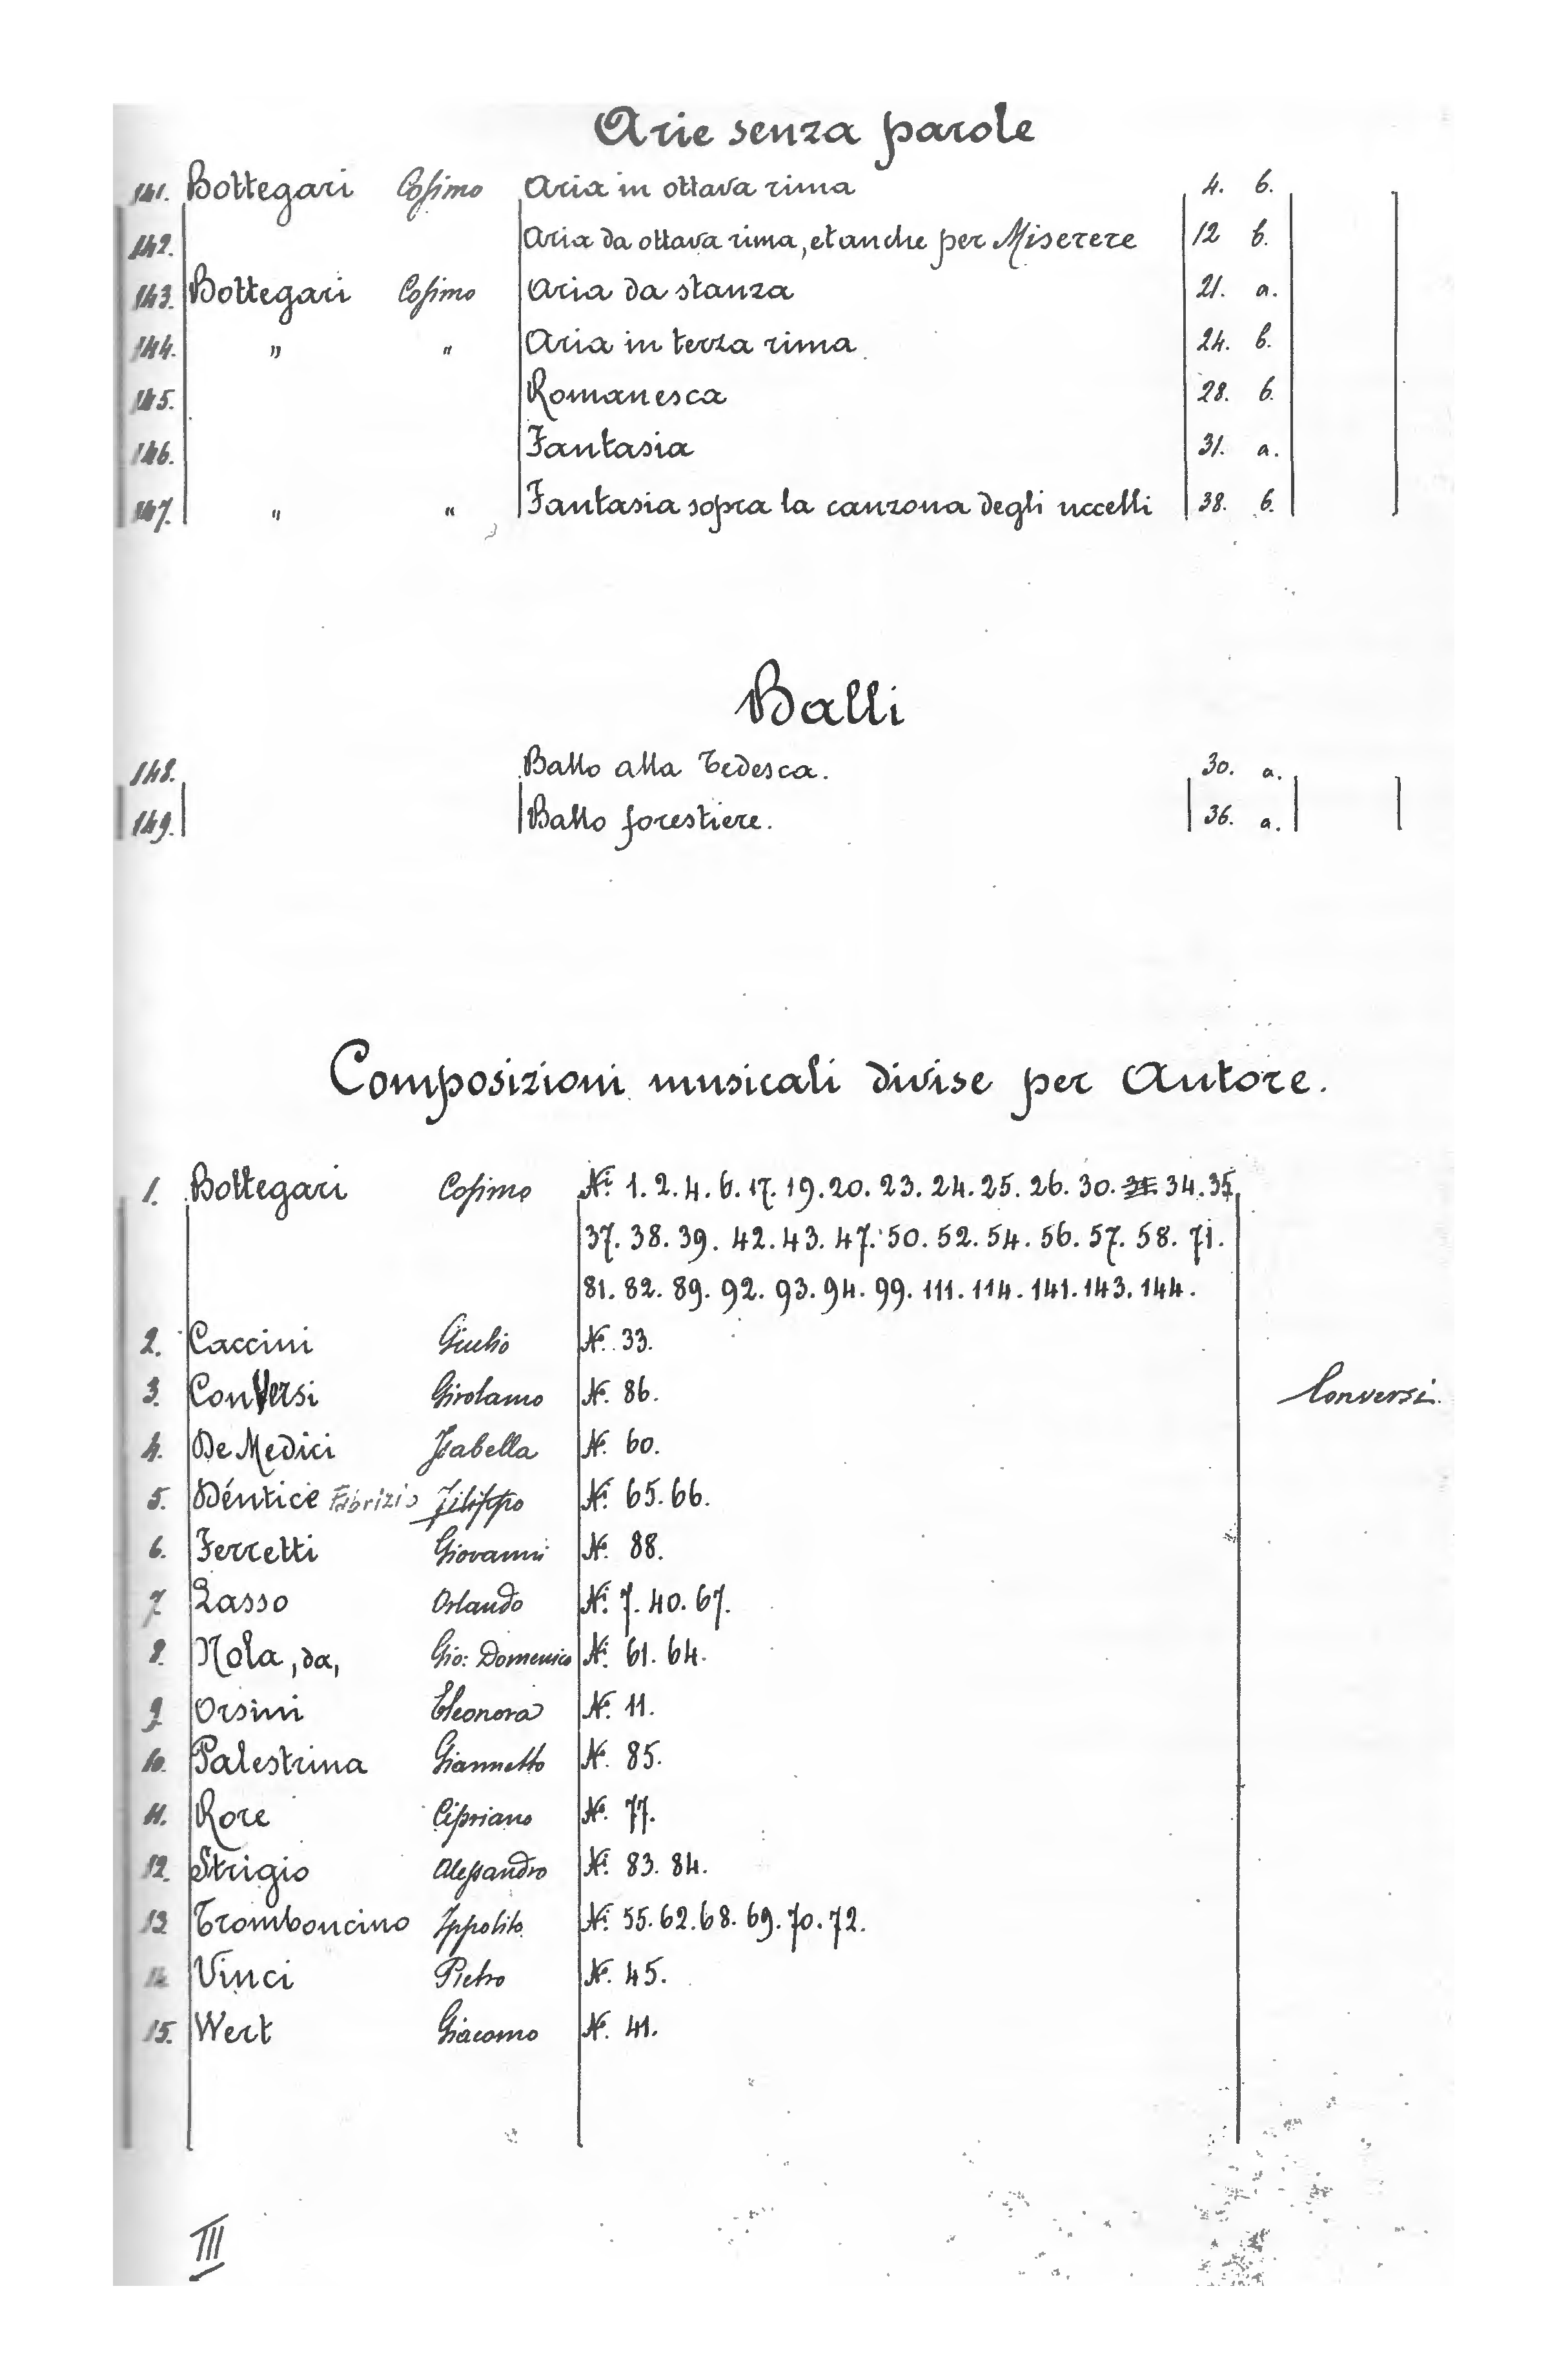 Arie senza parole
141. Bottegari Cosimo Aria in ottava rima 4. b.
142. Aria da ottava rima, et anche per Miserere 12 b.
143. Bottegari Cosimo Aria da stanza 21. a.
144. " " Aria in terza rima 24. b.
145. Romanesca 28. b.
146. Fantasia 31. a.
147. " " Fantasia sopra la canzona degli uccelli 38. b.
Balli
148. Ballo alla Tedesca. 30. a.
149. Ballo forestiere. 36. a.
Composizioni musicali divise per Autore.
1. Bottegari Cosimo Ni. 1. 2. 4. 6. 17. 19. 20. 23. 24. 25. 26. 30. 34. 35.
37. 38. 39. 42. 43. 47. 50. 52. 54. 56. 57. 58. 71.
81. 82. 89. 92. 93. 94. 99. 111. 114. 141. 143. 144.
2. Caccini Giulio No. 33.
3. Conversi Girolamo No. 86. Conversi
4. De Medici Isabella No. 60.
5. Déntice Fabrizio Filippo Ni. 65. 66.
6. Ferretti Giovanni No. 88.
7. Lasso Orlando Ni. 7. 40. 67.
8. Nola, da, Gio: Domenico Ni. 61. 64.
9. Orsini Eleonora No. 11.
10. Palestrina Giannetto No. 85.
11. Rore Cipriano No. 77.
12. Strigio Alessandro Ni. 83. 84.
13. Tromboncino Ippolito Ni. 55. 62. 68. 69. 70. 72.
14. Vinci Pietro No. 45.
15. Wert Giacomo No. 41.
III